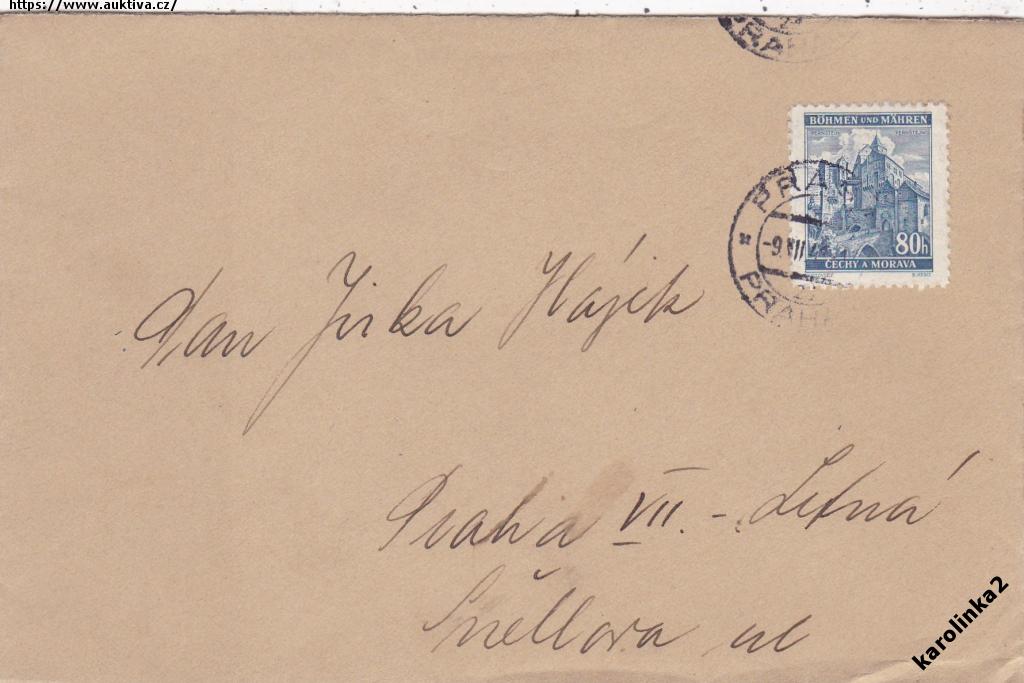 https://www.auktiva.cz/
PRAH
BÖHMEN UND MÄHREN
PERNSTEIN PERNŠTEJN
80h
ČECHY A MORAVA
PRAG
-9.VII
PRAHA
Pan Jirka Hájek
Praha VII. - Letná
Šnellova ul
karolinka2